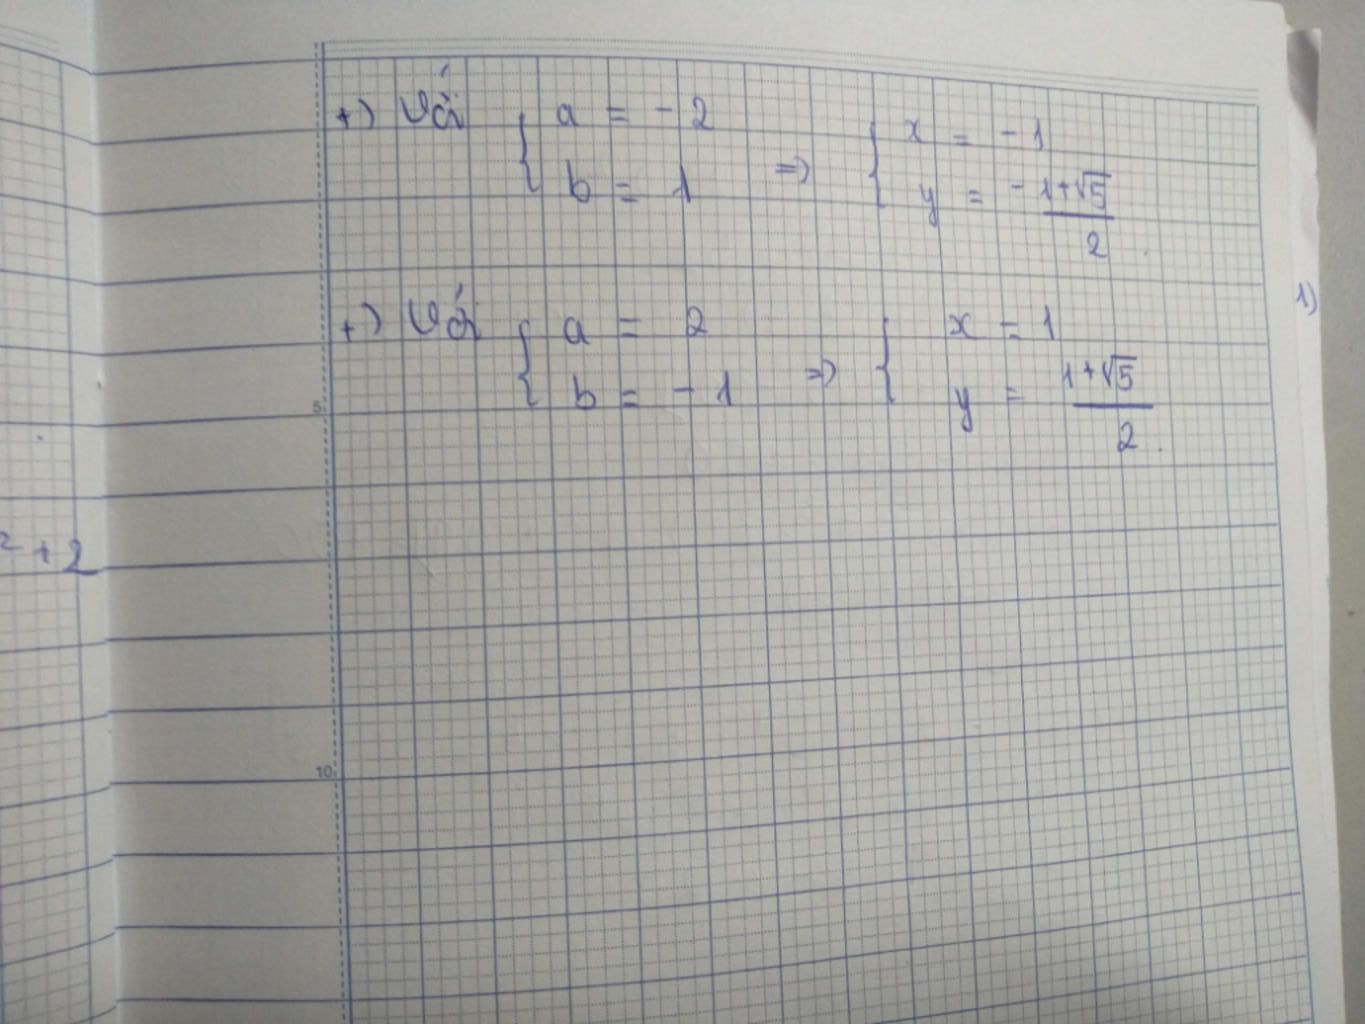 +) Với { a = -2
b = 1 => { x = -1
y = -1+√5/2.
+) Với { a = 2
b = -1 => { x = 1
y = 1+√5/2.
5
10
² + 2
1)